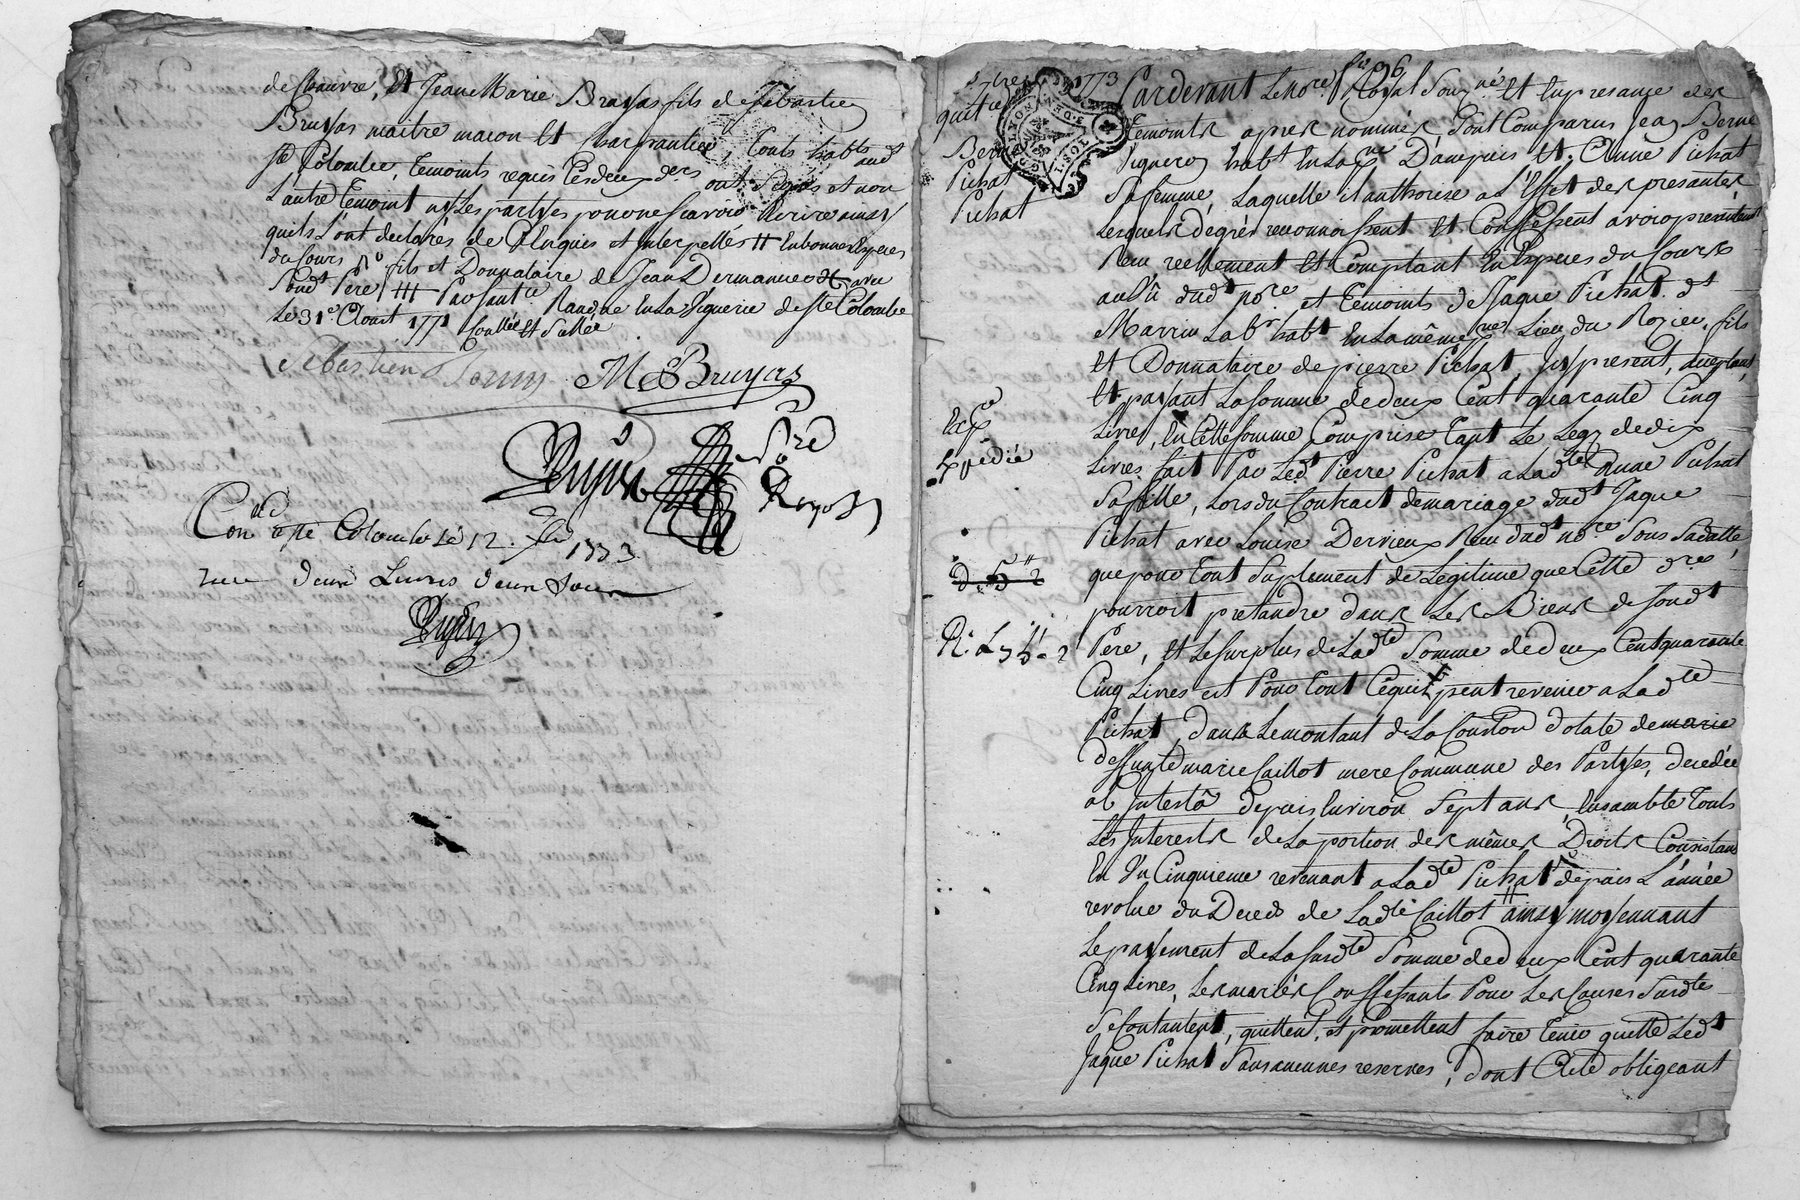 de Chanvre, et Jean Marie Bruyas fils de Sébastien
Bruyas maitre macon et charpantier, touts habts audt
Ste Colombe, temoints requis les deux ders ont signés et non
L'autre temoint ny Les partyes pour ne scavoir Ecrire ainsy
quils L'ont declarés de Ce Enquis et Interpellés # En bonnes Especes
du Cours
fils et Donnataire de Jean Dermanne avec
Sondt Pere
Le 31e Aoust 1771 Scellé
Sebastien M Bruyas
Conlé a Ste Colombe Le 12. 1773
reçu deux Livres deux Sous
1773
quitce
Berne
Pichat
Pichat
LYON
Expédié
Pardevant Le Nore Royal Sousné et En presance des
temoints apres nommés, Sont Comparus Jean Berne
Vigneron habt En La pse D'ampuis et Anne Pichat
Sa femme, Laquelle il authorise a L'Effet des presantes
Lesquels de gré reconnoissent et Confessent avoir presentemt
Reçu reellement et Comptant En Especes du Cours
au Vû dudt Nore et temoints de Jaque Pichat dt
Marrin Labr habt En La même pse Lieu du Rozier, fils
et Donnataire de pierre Pichat, Icy present, acceptant,
et payant La somme de deux Cent quarante Cinq
Livres, En Cette somme Comprise tant Le Legs de dix
Livres fait Par Ledt Pierre Pichat a Ladte Anne Pichat
Sa fille, Lors du Contrait de mariage dudt Jaque
Pichat avec Louise Dervieux Reçu dudt Nore Sous Sa datte,
que pour tout Suplement de Legitime que Cette dre
pourroit pretandre dans Les Biens de Sondt
Pere, et Le surplus de Ladte Somme de deux Cent quarante
Cinq Livres est Pour tout Ce qui peut revenir a Ladte
Pichat, dans Le montant de La Conston dotale de marie
deffunte marie Caillot mere Commune des Partyes, decedée
ab Intestà depuis Environ Sept ans, Ensamble touts
Les Interests de La portion des mêmes Droits Consistant
En Un Cinquieme revenant a Ladte Pichat depuis L'année
revolue du Decès de Ladte Caillot # ainsy moyennant
Le payement de La susdte Somme de deux Cent quarante
Cinq Livres, Les mariés Confessants Pour Les Causes Susdtes
Se Contantent, quittent, et promettent faire tenir quitte Ledt
Jaque Pichat Sans aucunes reserves, dont Acte obligeant